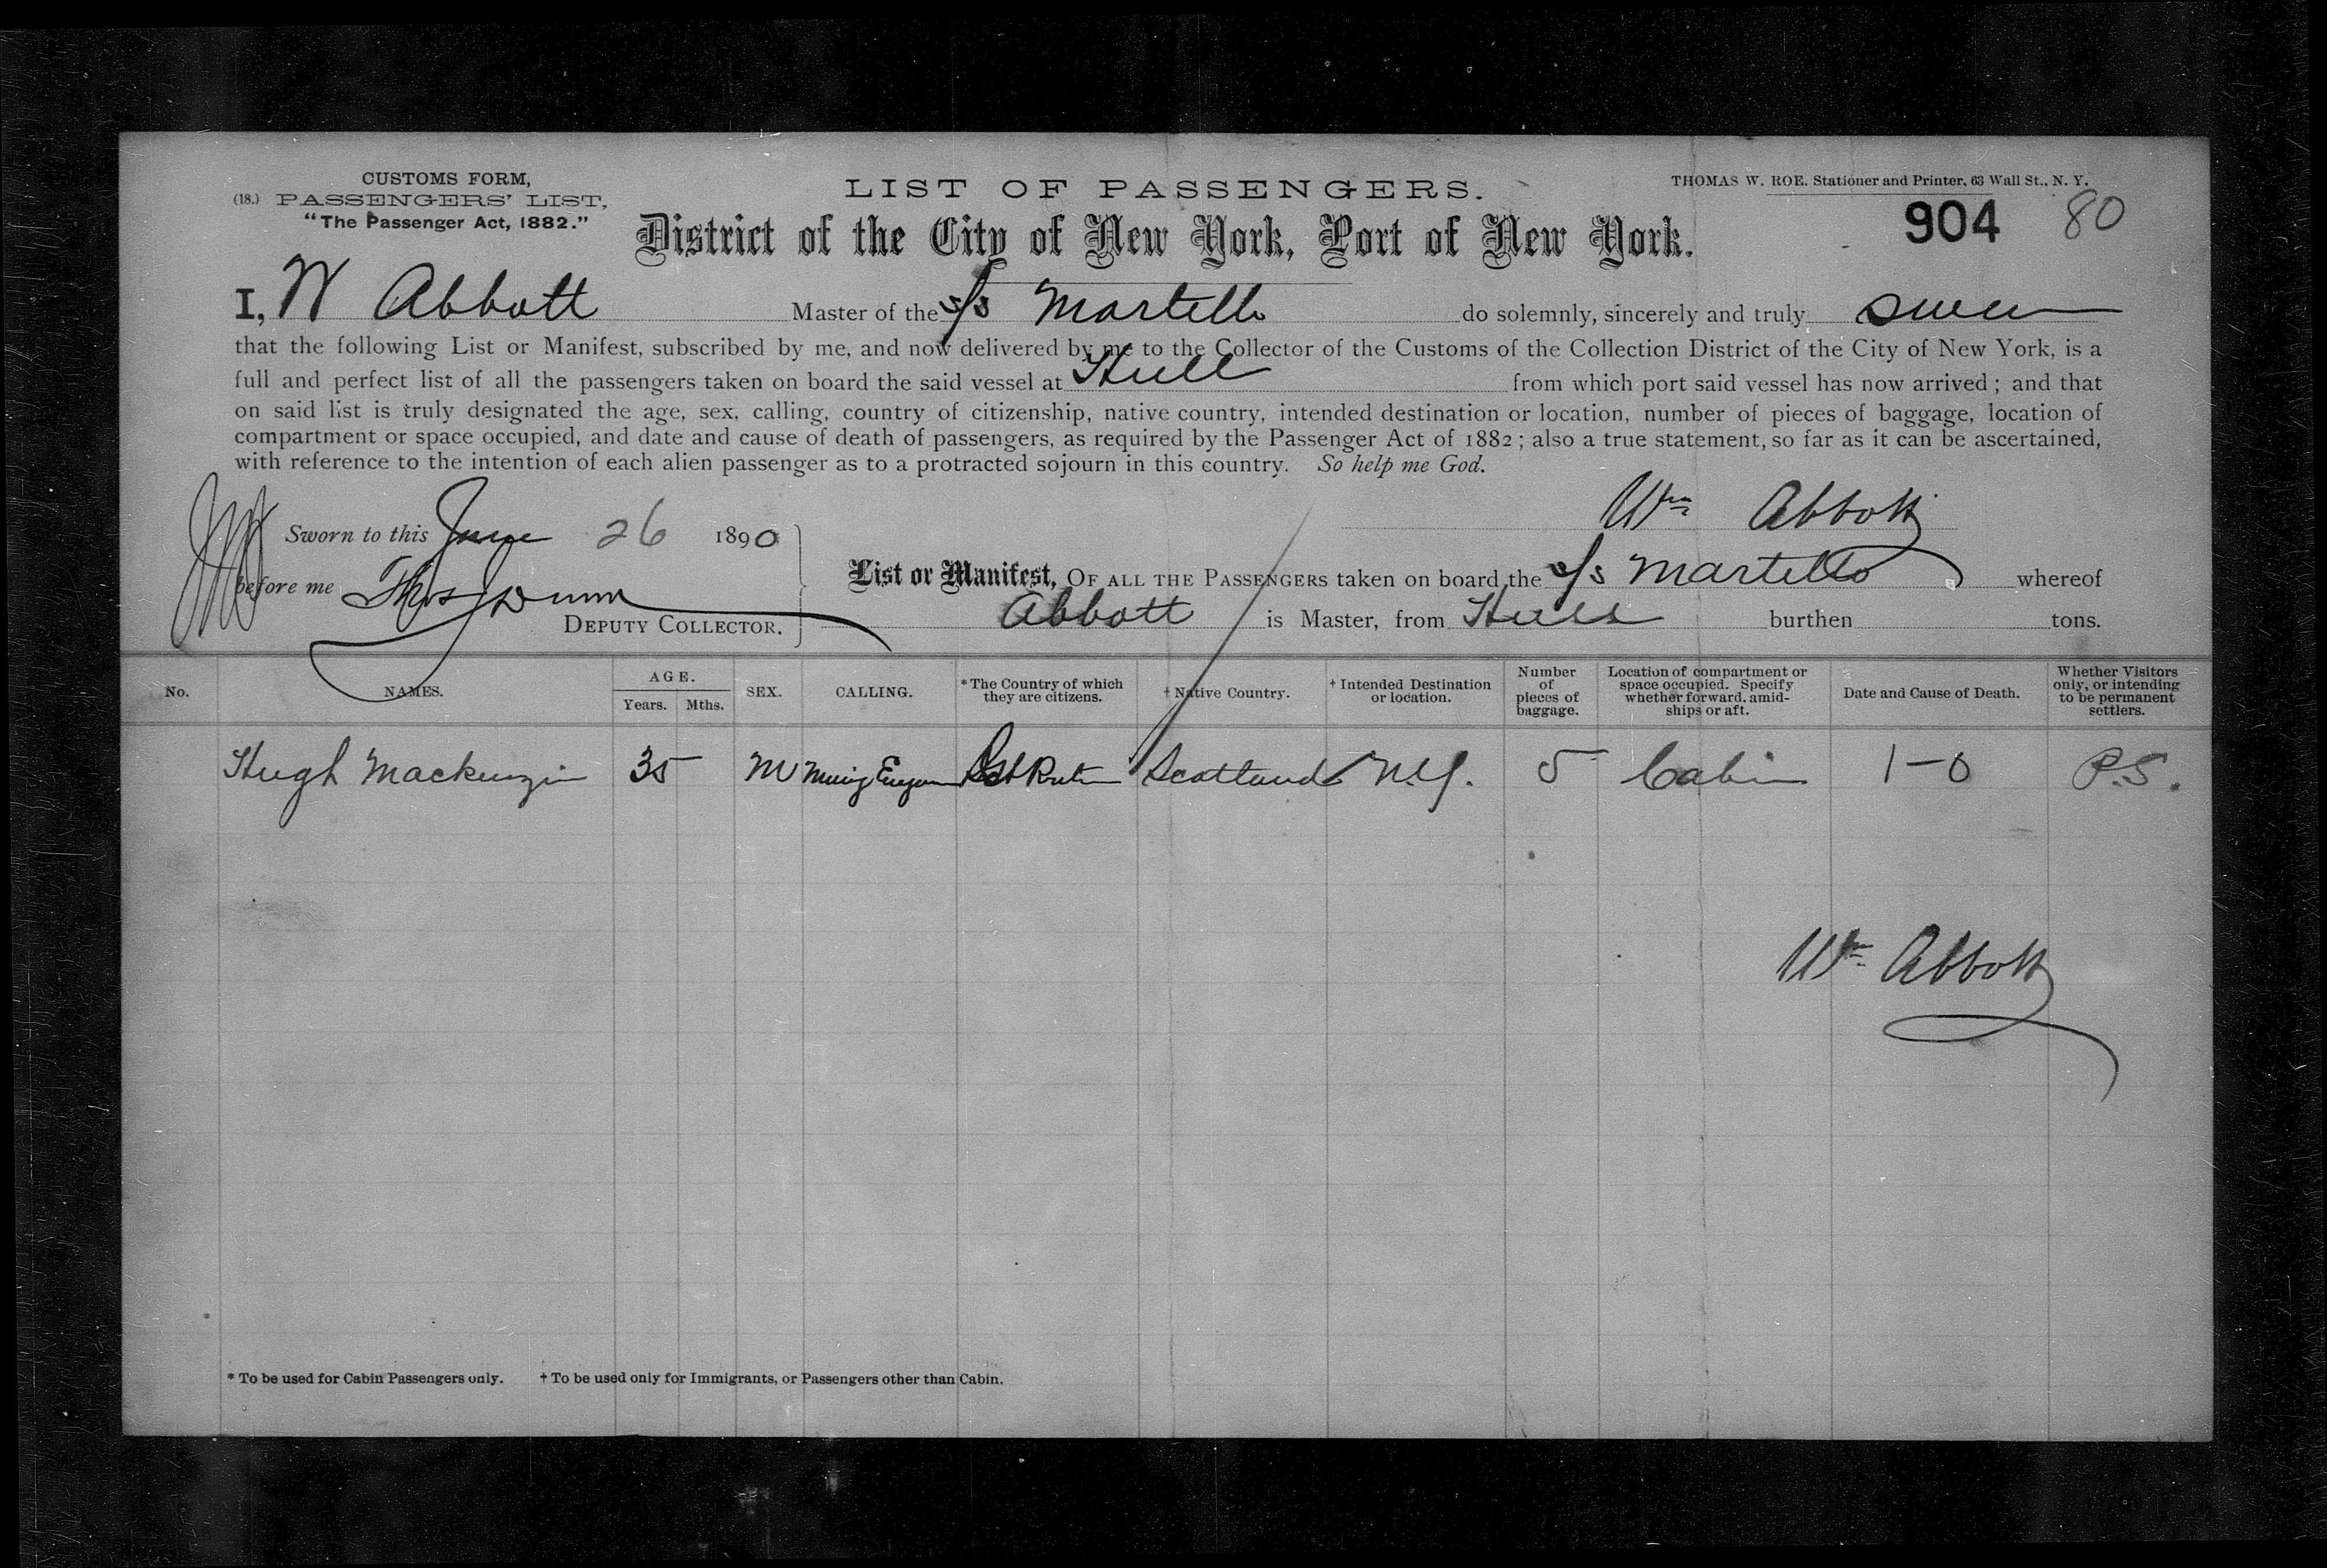 CUSTOMS FORM,
(18.) PASSENGERS' LIST,
"The Passenger Act, 1882."
LIST OF PASSENGERS.
THOMAS W. ROE. Stationer and Printer, 63 Wall St., N. Y.
District of the City of New York, Port of New York.
904 80
I, W Abbott Master of the s/s Martello do solemnly, sincerely and truly swear
that the following List or Manifest, subscribed by me, and now delivered by me to the Collector of the Customs of the Collection District of the City of New York, is a
full and perfect list of all the passengers taken on board the said vessel at Hull from which port said vessel has now arrived; and that
on said list is truly designated the age, sex, calling, country of citizenship, native country, intended destination or location, number of pieces of baggage, location of
compartment or space occupied, and date and cause of death of passengers, as required by the Passenger Act of 1882; also a true statement, so far as it can be ascertained,
with reference to the intention of each alien passenger as to a protracted sojourn in this country. So help me God.
Wm Abbott
Sworn to this June 26 1890
before me Thos Dunn
DEPUTY COLLECTOR.
List or Manifest, OF ALL THE PASSENGERS taken on board the s/s Martello whereof
Abbott is Master, from Hull burthen tons.
No. NAMES. AGE. Years. Mths. SEX. CALLING. *The Country of which they are citizens. †Native Country. †Intended Destination or location. Number of pieces of baggage. Location of compartment or space occupied. Specify whether forward, amidships or aft. Date and Cause of Death. Whether Visitors only, or intending to be permanent settlers.
Hugh Mackenzie 35 M Mining Engineer Scotland N.Y. 5 Cabin 1-0 P.S.
Wm Abbott
* To be used for Cabin Passengers only. † To be used only for Immigrants, or Passengers other than Cabin.